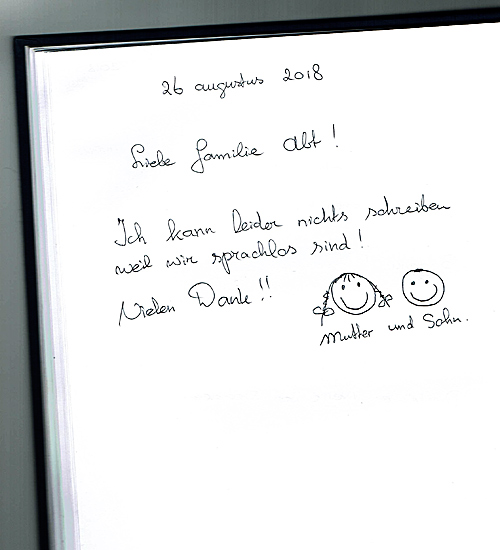 26 augustus 2018
Liebe Familie Abt!
Ich kann leider nichts schreiben
weil wir sprachlos sind!
Vielen Dank!!
Mutter und Sohn.